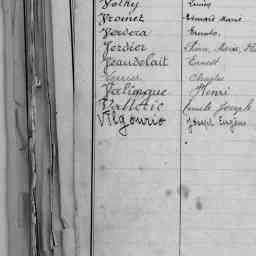 Volny Louis
Vromet Edmond Marie
Ververa
Verdier Marie
Veaudelait Ernest
Verrier Charles
Valinque Henri
Valltic Camille Joseph
Vilgourio Joseph Eugène